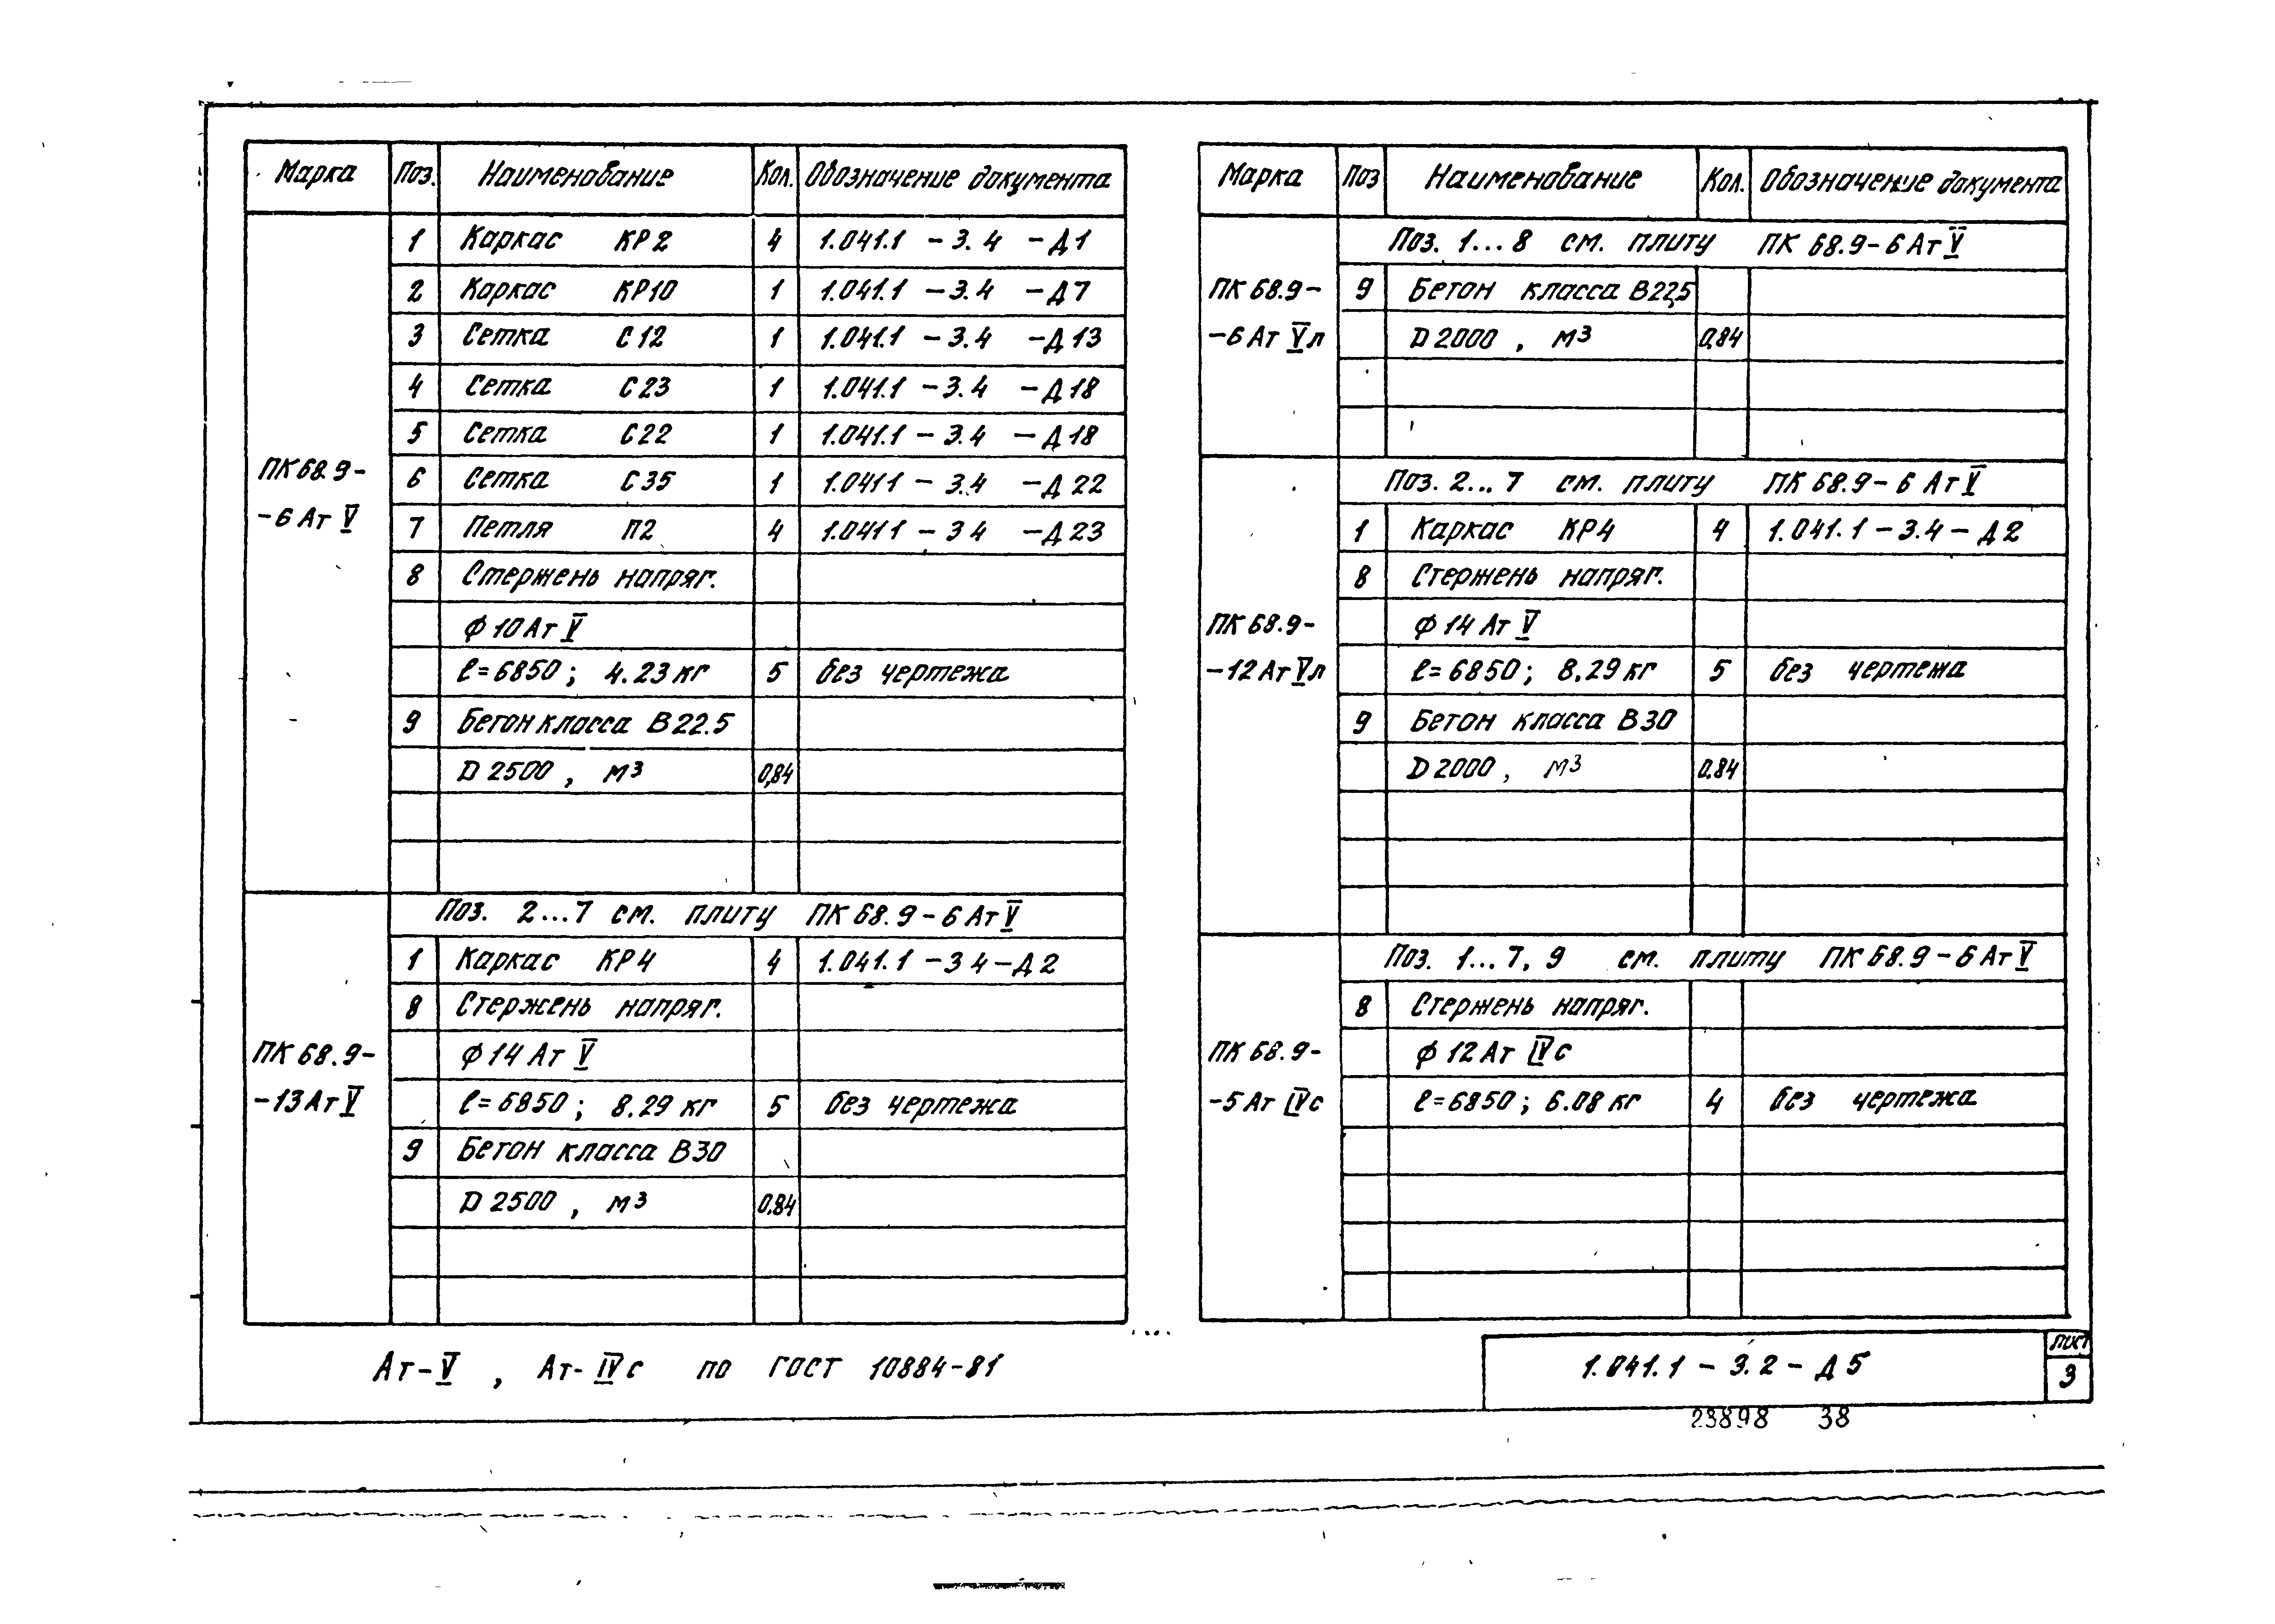 Марка Поз. Наименование Кол. Обозначение документа
1 Каркас КР2 4 1.041.1 - 3.4 - Д1
2 Каркас КР10 1 1.041.1 - 3.4 - Д7
3 Сетка С12 1 1.041.1 - 3.4 - Д13
4 Сетка С23 1 1.041.1 - 3.4 - Д18
5 Сетка С22 1 1.041.1 - 3.4 - Д18
ПК68.9-
6 Сетка С35 1 1.0411 - 3.4 - Д22
-6 Ат V
7 Петля П2 4 1.0411 - 34 - Д23
8 Стержень напряг.
ф 10 Ат V
ℓ=6850; 4.23 кг 5 без чертежа
9 Бетон класса В22.5
D 2500, м3 0,84
Поз. 2...7 см. плиту ПК 68.9-6 Ат V
1 Каркас КР4 4 1.041.1 - 34 - Д2
8 Стержень напряг.
ПК 68.9-
ф 14 Ат V
-13 Ат V
ℓ=6850; 8.29 кг 5 без чертежа
9 Бетон класса В30
D 2500, м3 0.84
Марка Поз Наименование Кол. Обозначение документа
Поз. 1...8 см. плиту ПК 68.9-6 Ат V
ПК 68.9-
9 Бетон класса В22,5
-6 Ат Vл
D 2000, м3 0,84
Поз. 2...7 см. плиту ПК 68.9-6 Ат V
1 Каркас КР4 4 1.041.1 - 3.4 - Д2
8 Стержень напряг.
ПК 68.9-
ф 14 Ат V
-12 Ат Vл
ℓ=6850; 8.29 кг 5 без чертежа
9 Бетон класса В30
D 2000, м3 0.84
Поз. 1...7, 9 см. плиту ПК 68.9-6 Ат V
8 Стержень напряг.
ПК 68.9-
ф 12 Ат IVс
-5 Ат IVс
ℓ=6850; 6.08 кг 4 без чертежа
Ат-V, Ат-IVс по ГОСТ 10884-81
1.041.1 - 3.2 - Д5
Лист
3
23898 38